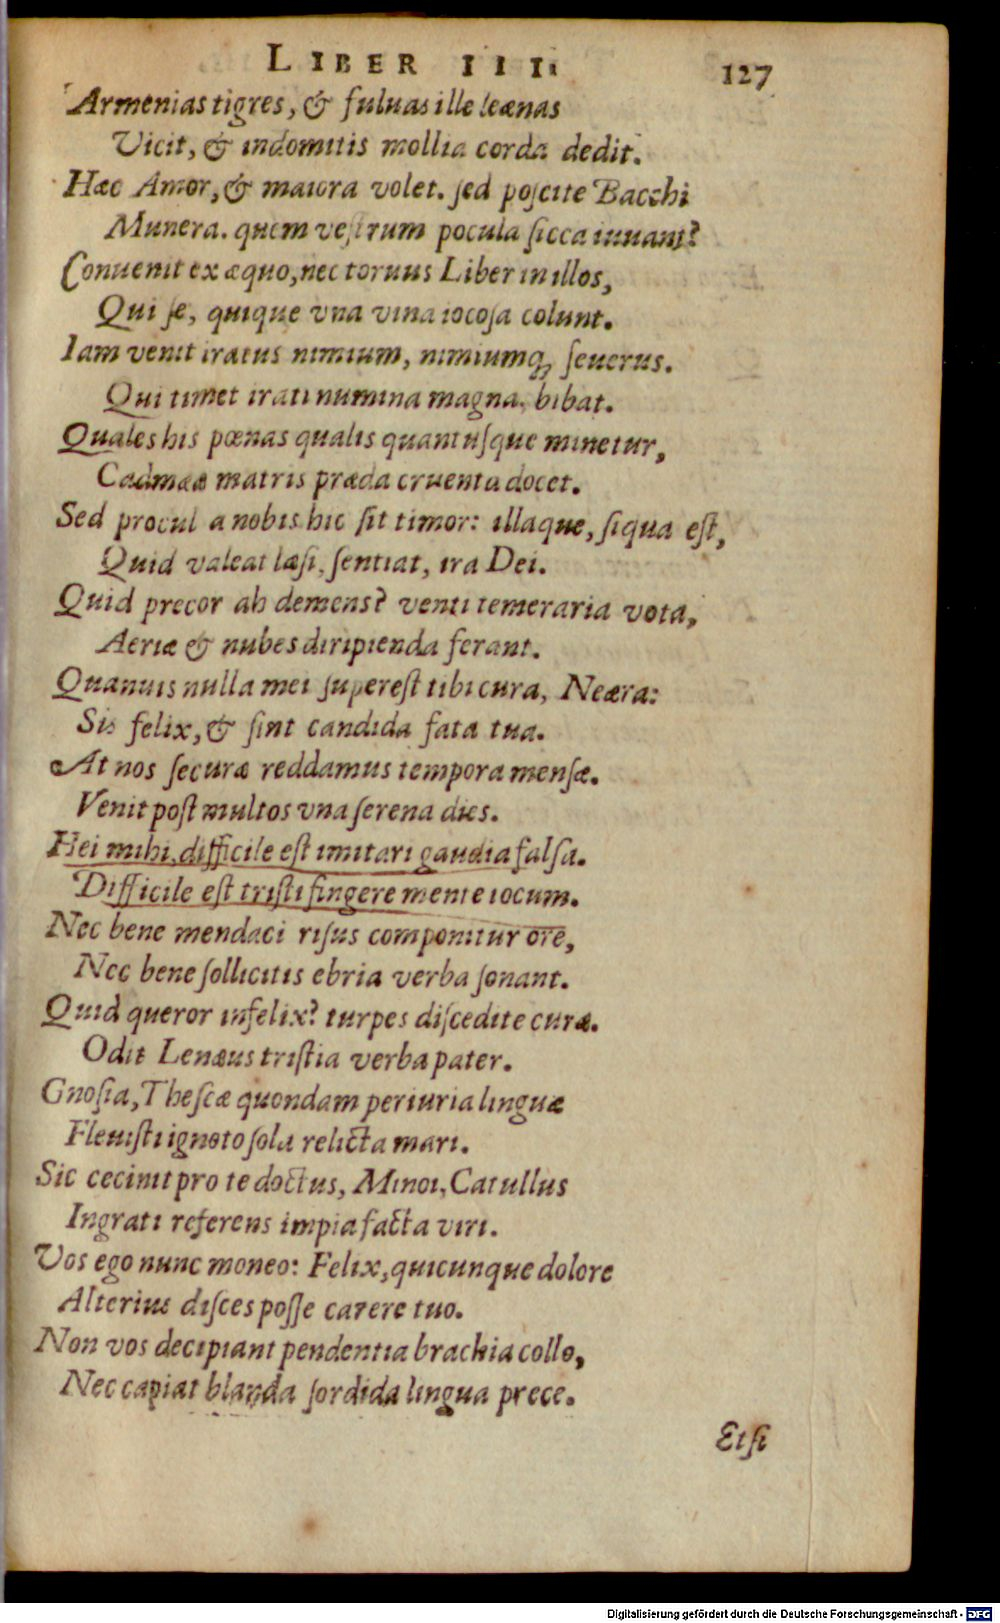 LIBER III. 127
Armenias tigres, & fuluas ille leænas
Vicit, & indomitis mollia corda dedit.
Hæc Amor, & maiora volet. sed poscite Bacchi
Munera. quem vestrum pocula sicca iuuant?
Conuenit ex æquo, nec toruus Liber in illos,
Qui se, quique vna vina iocosa colunt.
Iam venit iratus nimium, nimiumq; seuerus.
Qui timet irati numina magna, bibat.
Quales his pœnas qualis quantusque minetur,
Cadmææ matris præda cruenta docet.
Sed procul a nobis hic sit timor: illaque, siqua est,
Quid valeat læsi, sentiat, ira Dei.
Quid precor ah demens? venti temeraria vota,
Aeriæ & nubes diripienda ferant.
Quanuis nulla mei superest tibi cura, Neæra:
Sis felix, & sint candida fata tua.
At nos securæ reddamus tempora mensæ.
Venit post multos vna serena dies.
Hei mihi, difficile est imitari gaudia falsa.
Difficile est tristi fingere mente iocum.
Nec bene mendaci risus componitur ore,
Nec bene sollicitis ebria verba sonant.
Quid queror infelix? turpes discedite curæ.
Odit Lenæus tristia verba pater.
Gnosia, Theseæ quondam periuria linguæ
Fleuisti ignoto sola relicta mari.
Sic cecinit pro te doctus, Minoi, Catullus
Ingrati referens impia facta viri.
Vos ego nunc moneo: Felix, quicunque dolore
Alterius disces posse carere tuo.
Non vos decipiant pendentia brachia collo,
Nec capiat blanda sordida lingua prece.
Etsi
Digitalisierung gefördert durch die Deutsche Forschungsgemeinschaft - DFG